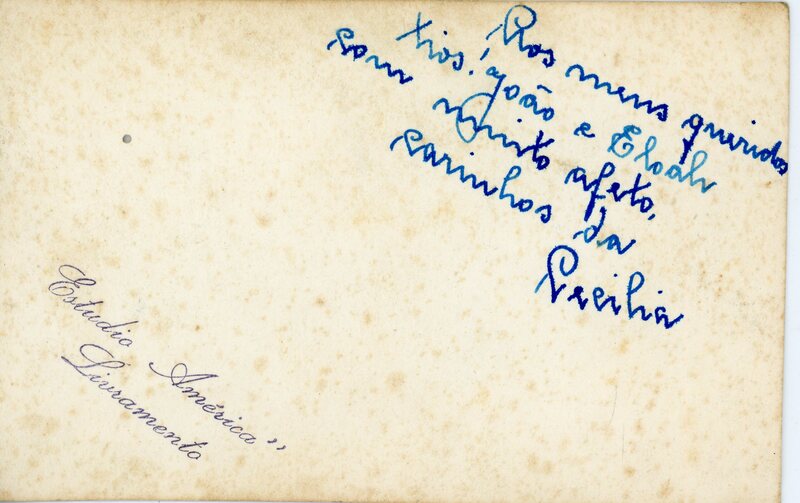 Aos meus queridos
tios: João e Eloah
com muito afeto,
carinhos da
Cecilia
Estudio América"
Livramento